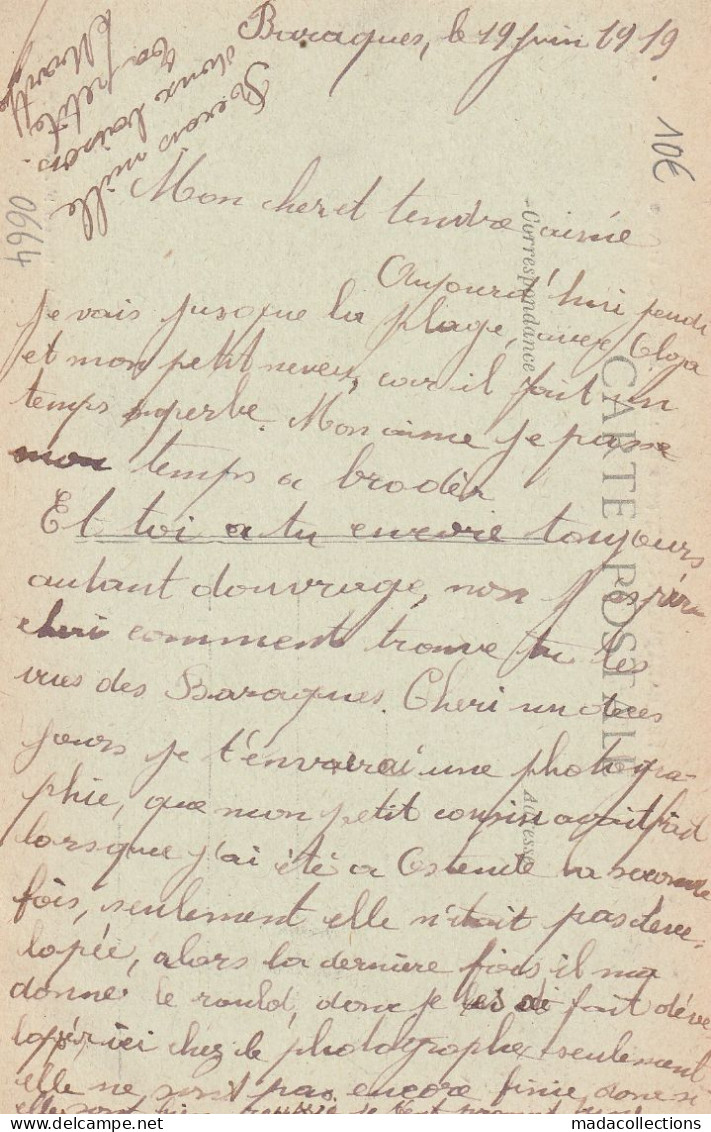 Baraques, le 19 Juin 1919.
Reçois mille
doux baisers
ta petite
Marthe
10€
0664
Mon cher et tendre aimé
Aujourd'hui jeudi
je vais jusque la plage, avec Olga
et mon petit neveu, car il fait un
temps superbe. Mon aimé je passe
mon temps a broder
Et toi a tu encore toujours
autant douvrage, non j'espère
cheri comment trouve tu les
vues des Baraques. Cheri un de ces
jours je t'envairai une photogra-
phie, que mon petit cousin avait fait
lorsque j'ai été a Ostende la seconde
fois, seulement elle n'était pas deve-
lopée, alors la dernière fois il ma
donné le rould, donc je les ai fait déve
loper ici chez le photographe seulement
elle ne sont pas encore finie, donc si
elle sont bien
Correspondance
CARTE POSTALE
Adresse
www.madacollections.com